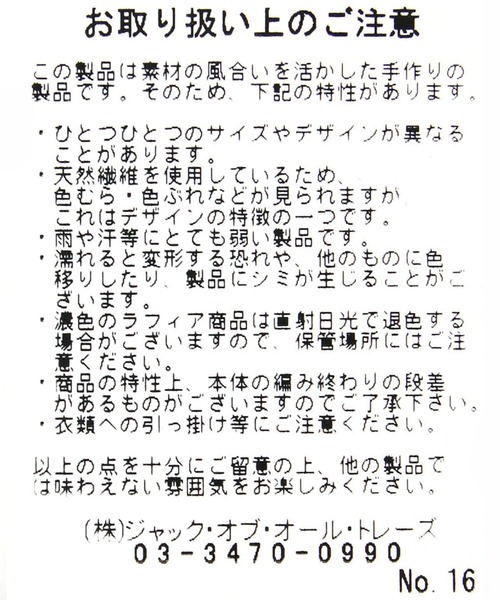 お取り扱い上のご注意
この製品は素材の風合いを活かした手作りの
製品です。そのため、下記の特性があります。
・ひとつひとつのサイズやデザインが異なる
ことがあります。
・天然繊維を使用しているため、
色むら・色ぶれなどが見られますが
これはデザインの特徴の一つです。
・雨や汗等にとても弱い製品です。
・濡れると変形する恐れや、他のものに色
移りしたり、製品にシミが生じることがご
ざいます。
・濃色のラフィア商品は直射日光で退色する
場合がございますので、保管場所にはご注
意ください。
・商品の特性上、本体の編み終わりの段差
があるものがございますのでご了承下さい。
・衣類への引っ掛け等にご注意ください。
以上の点を十分にご留意の上、他の製品で
は味わえない雰囲気をお楽しみください。
(株)ジャック・オブ・オール・トレーズ
03-3470-0990
No. 16